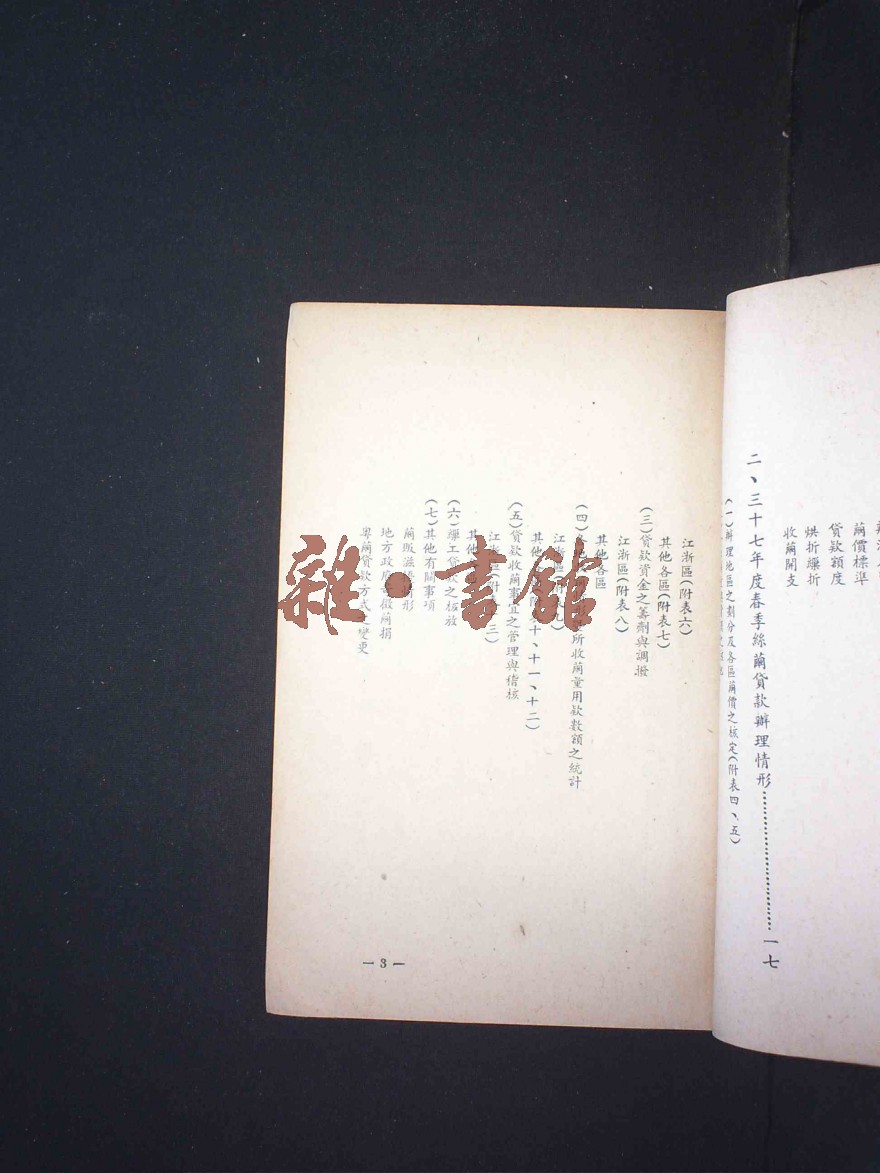 繭價標準
貸款額度
烘折繅折
收繭開支
二、三十七年度春季絲繭貸款辦理情形⋯⋯⋯⋯一七
(一)辦理地區之劃分及各區繭價之核定(附表四、五)
江浙區(附表六)
其他各區(附表七)
(三)貸款資金之籌劑與調撥
江浙區(附表八)
其他各區
(四)所收繭量用款數額之統計
江浙區
其他十、十一、十二)
(五)貸款收繭事宜之管理與稽核
江浙區(附三)
其他
(六)繅工貸款之核放
(七)其他有關事項
繭販滋形
地方政府徵繭捐
粵繭貸款方式之變更
— 3 —
雜·書館